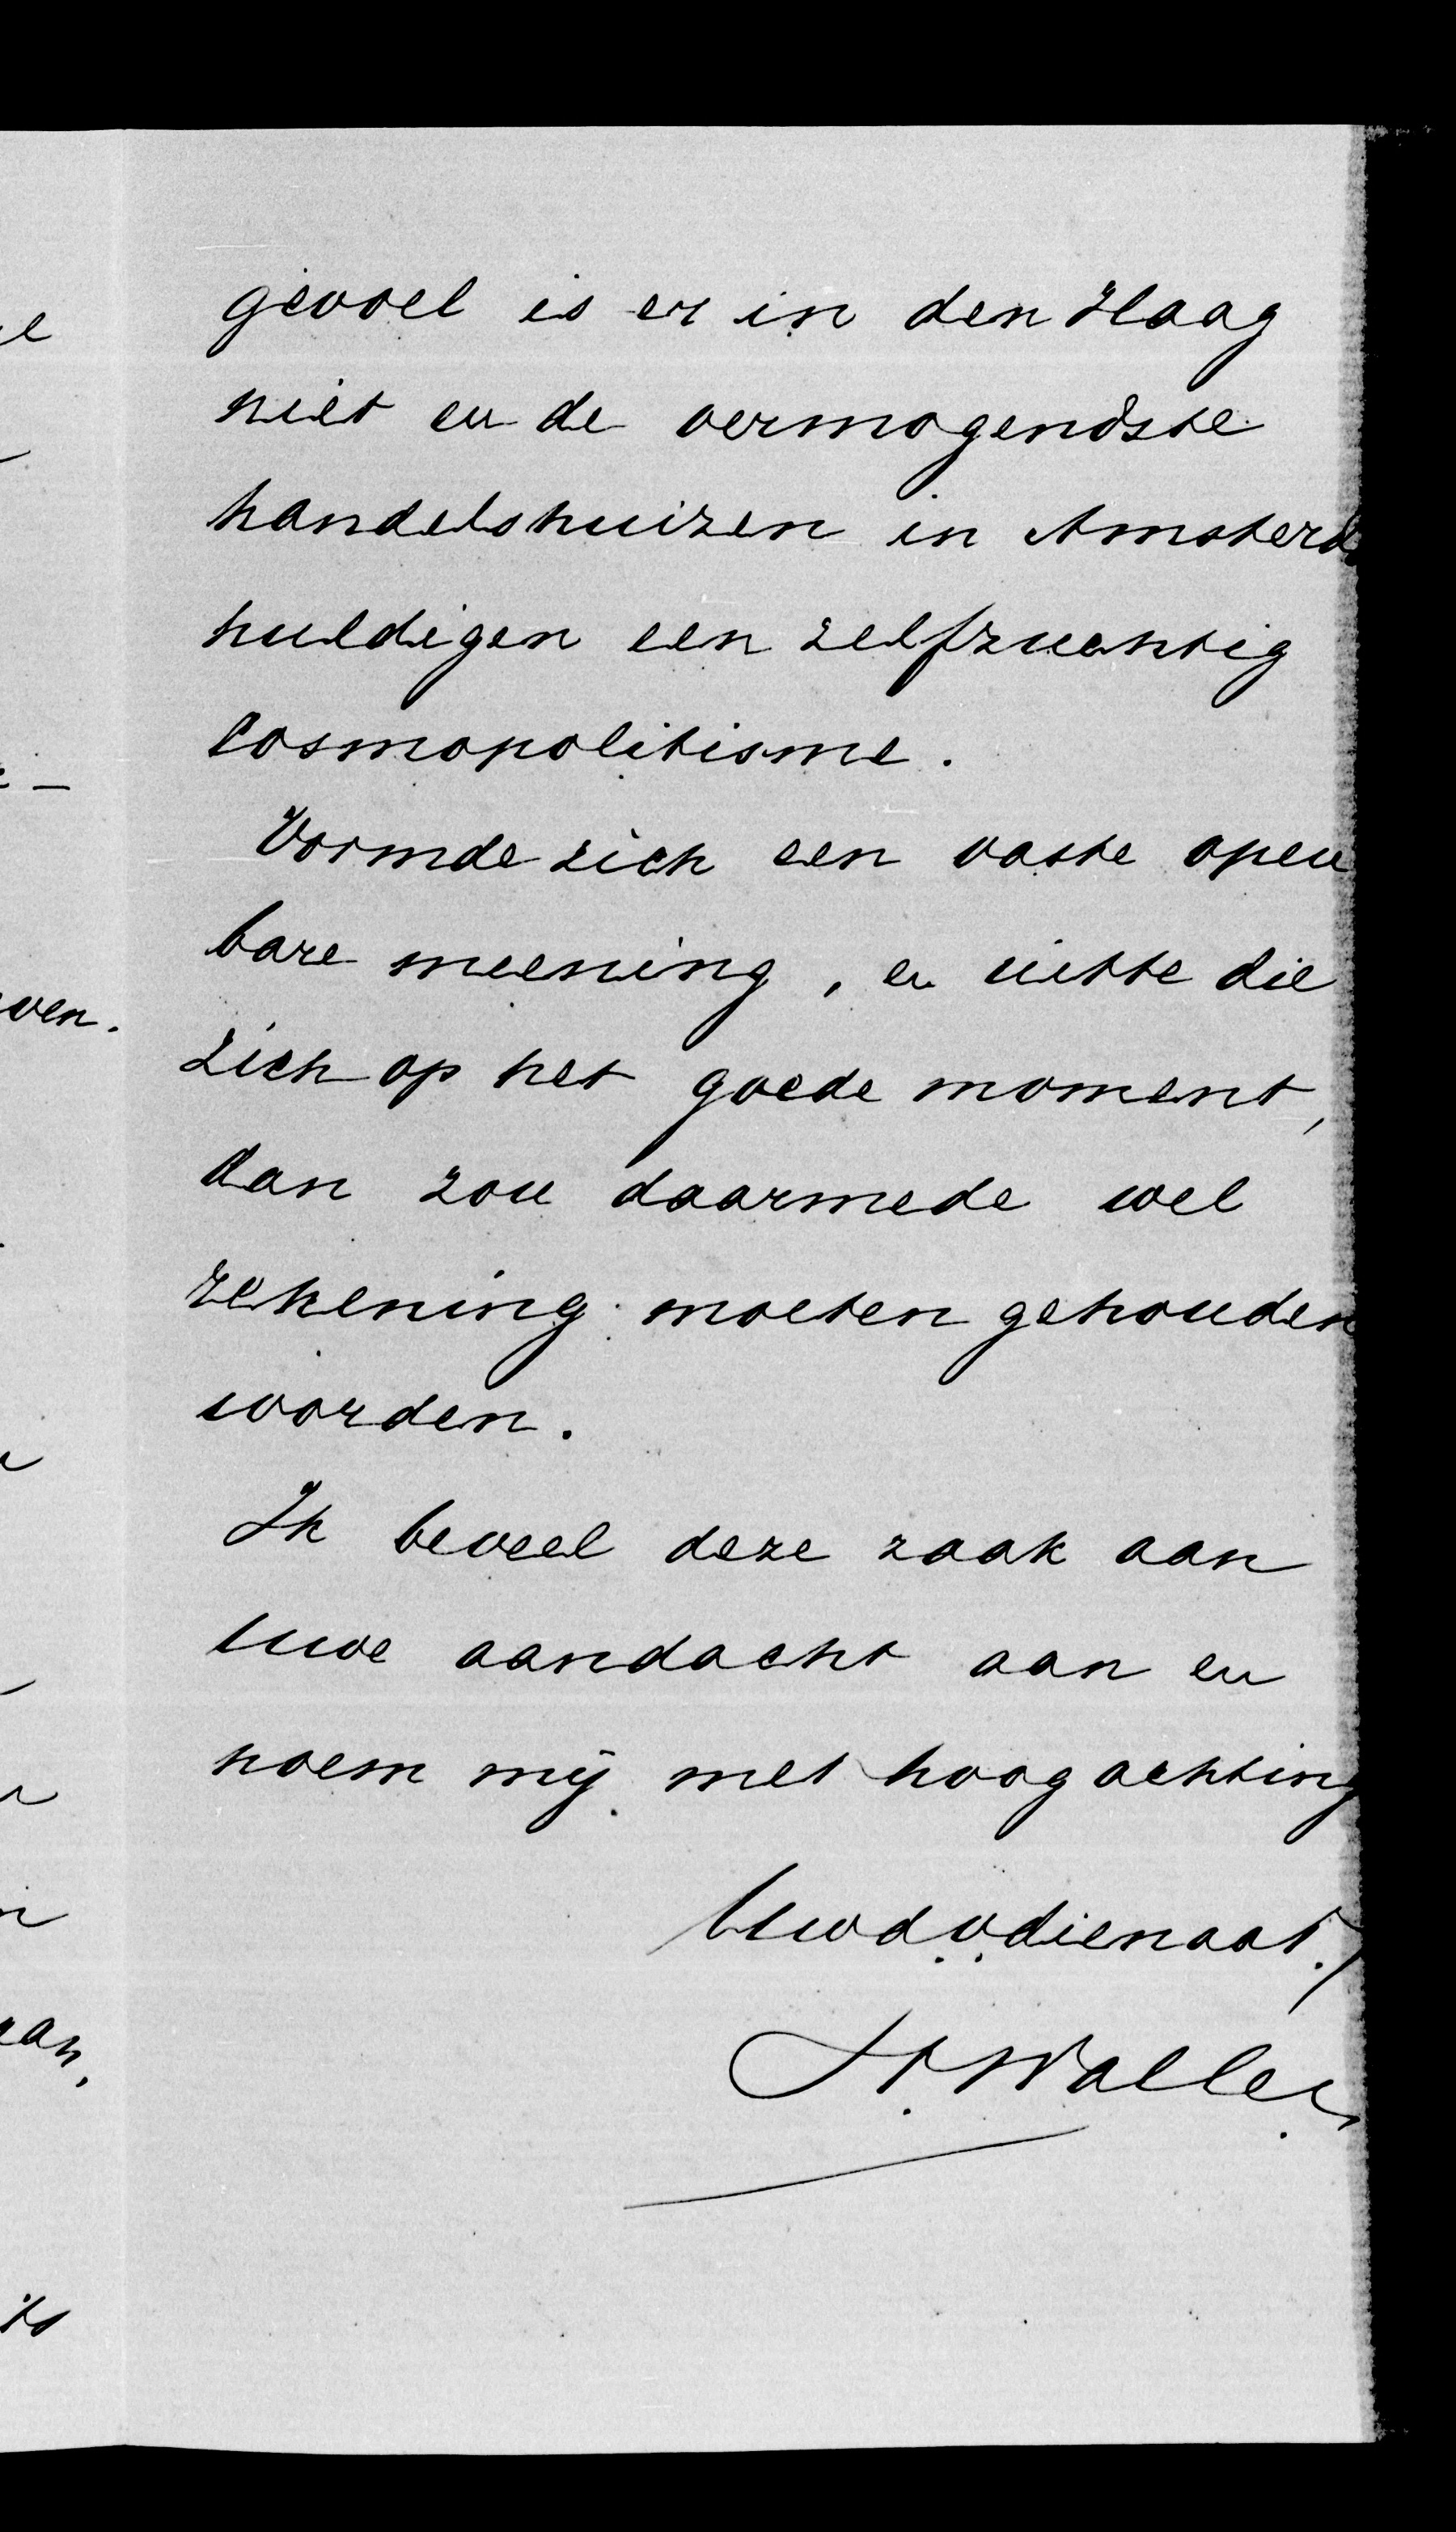 gevoel is er in den Haag
niet en de vermogendste
handelshuizen in Amsterd.
huldigen een zelfzuchtig
cosmopolitisme.
Vormde zich een vaste open
bare meening, en uitte die
zich op het goede moment,
dan zou daarmede wel
rekening moeten gehouden
worden.
Ik beveel deze zaak aan
uwe aandacht aan en
noem mij met hoogachting
Uwd.v.dienaar.
Waller